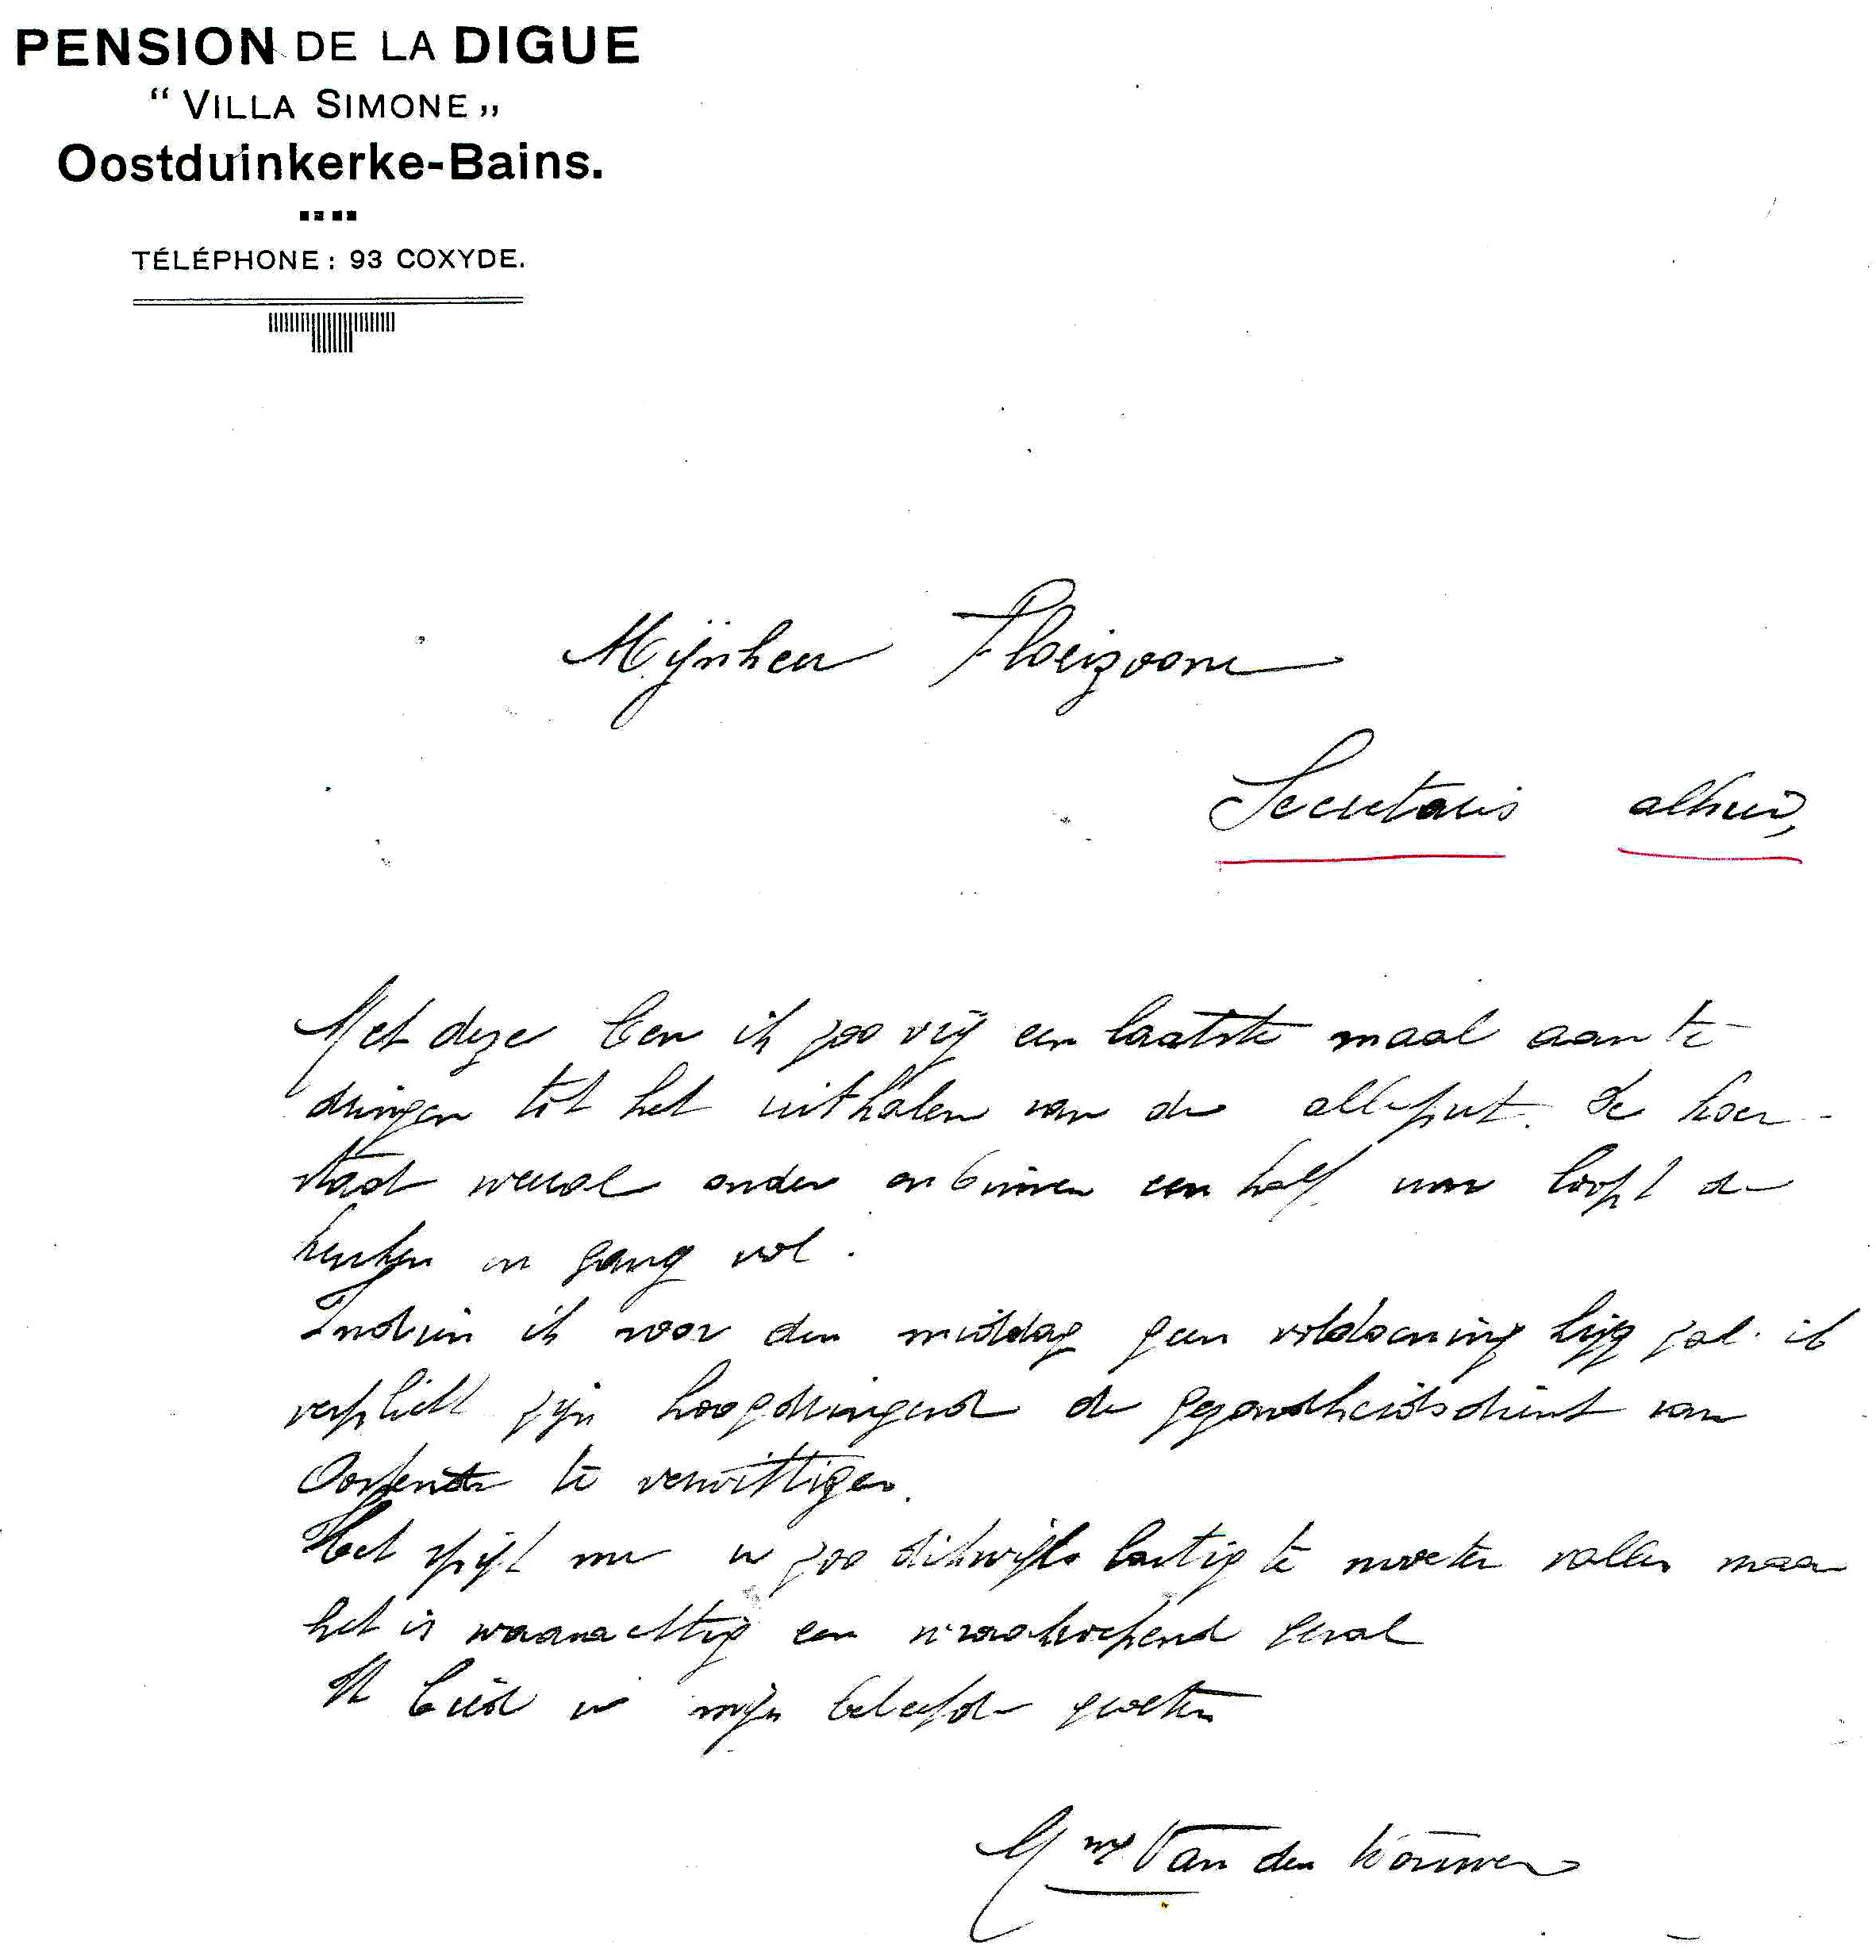 PENSION DE LA DIGUE
“ VILLA SIMONE „
Oostduinkerke-Bains.
TÉLÉPHONE : 93 COXYDE.
Mijnheer Florizoone
Secretaris alhier,
Met deze ben ik zoo vrij een laatste maal aan te
dringen tot het uithalen van de alleput. De koer
staat weeral onder en binnen een half uur loopt de
keuken en gang vol.
Indien ik voor den middag geen voldoening krijg zal ik
verplicht zijn hoogdringend de gezondheidsdienst van
Oostende te verwittigen.
Het spijt me u zoo dikwijls lastig te moeten vallen maar
het is waarachtig een wraakroepend geval
Ik bied u mijn beleefde groeten
Mme Van den